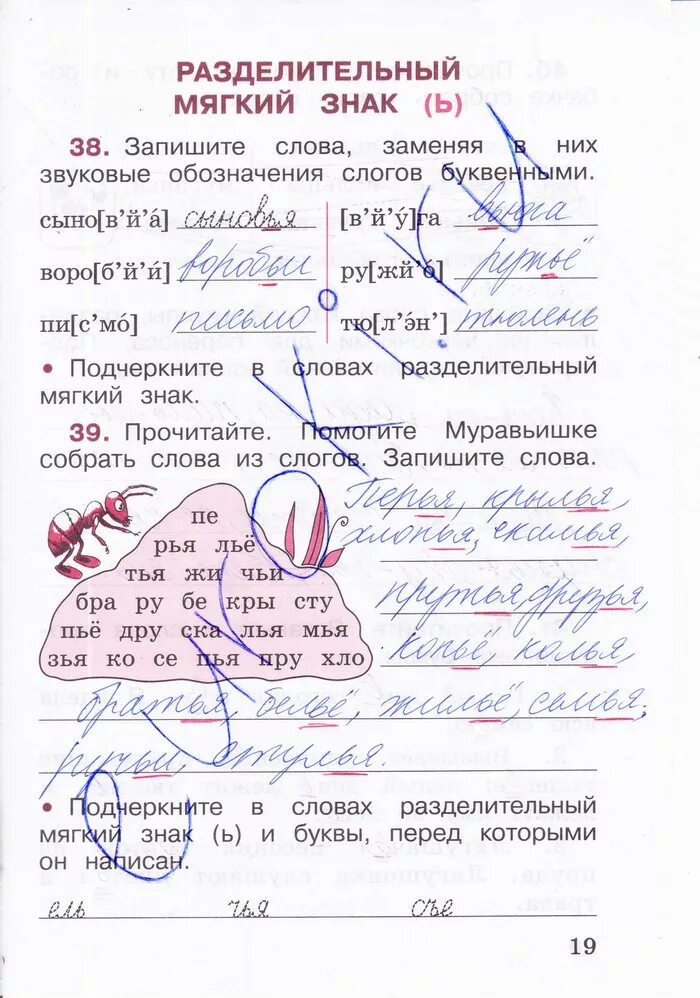 РАЗДЕЛИТЕЛЬНЫЙ
МЯГКИЙ ЗНАК (Ь)
38. Запишите слова, заменяя в них
звуковые обозначения слогов буквенными.
сыно[в'й'а́] сыновья [в'й'у́]га вьюга
воро[б'й'и́] воробьи ру[жй'о́] ружьё
пи[с'мо́] письмо тю[л'э́н'] тюлень
• Подчеркните в словах разделительный
мягкий знак.
39. Прочитайте. Помогите Муравьишке
собрать слова из слогов. Запишите слова.
пе
рья льё
тья жи чьи
бра ру бе кры сту
пьё дру ска лья мья
зья ко се пья пру хло
Перья, крылья,
хлопья, скамья,
прутья, друзья,
копьё, колья,
братья, бельё, жильё, семья,
ручьи стулья.
• Подчеркните в словах разделительный
мягкий знак (ь) и буквы, перед которыми
он написан.
ель чья сье
19